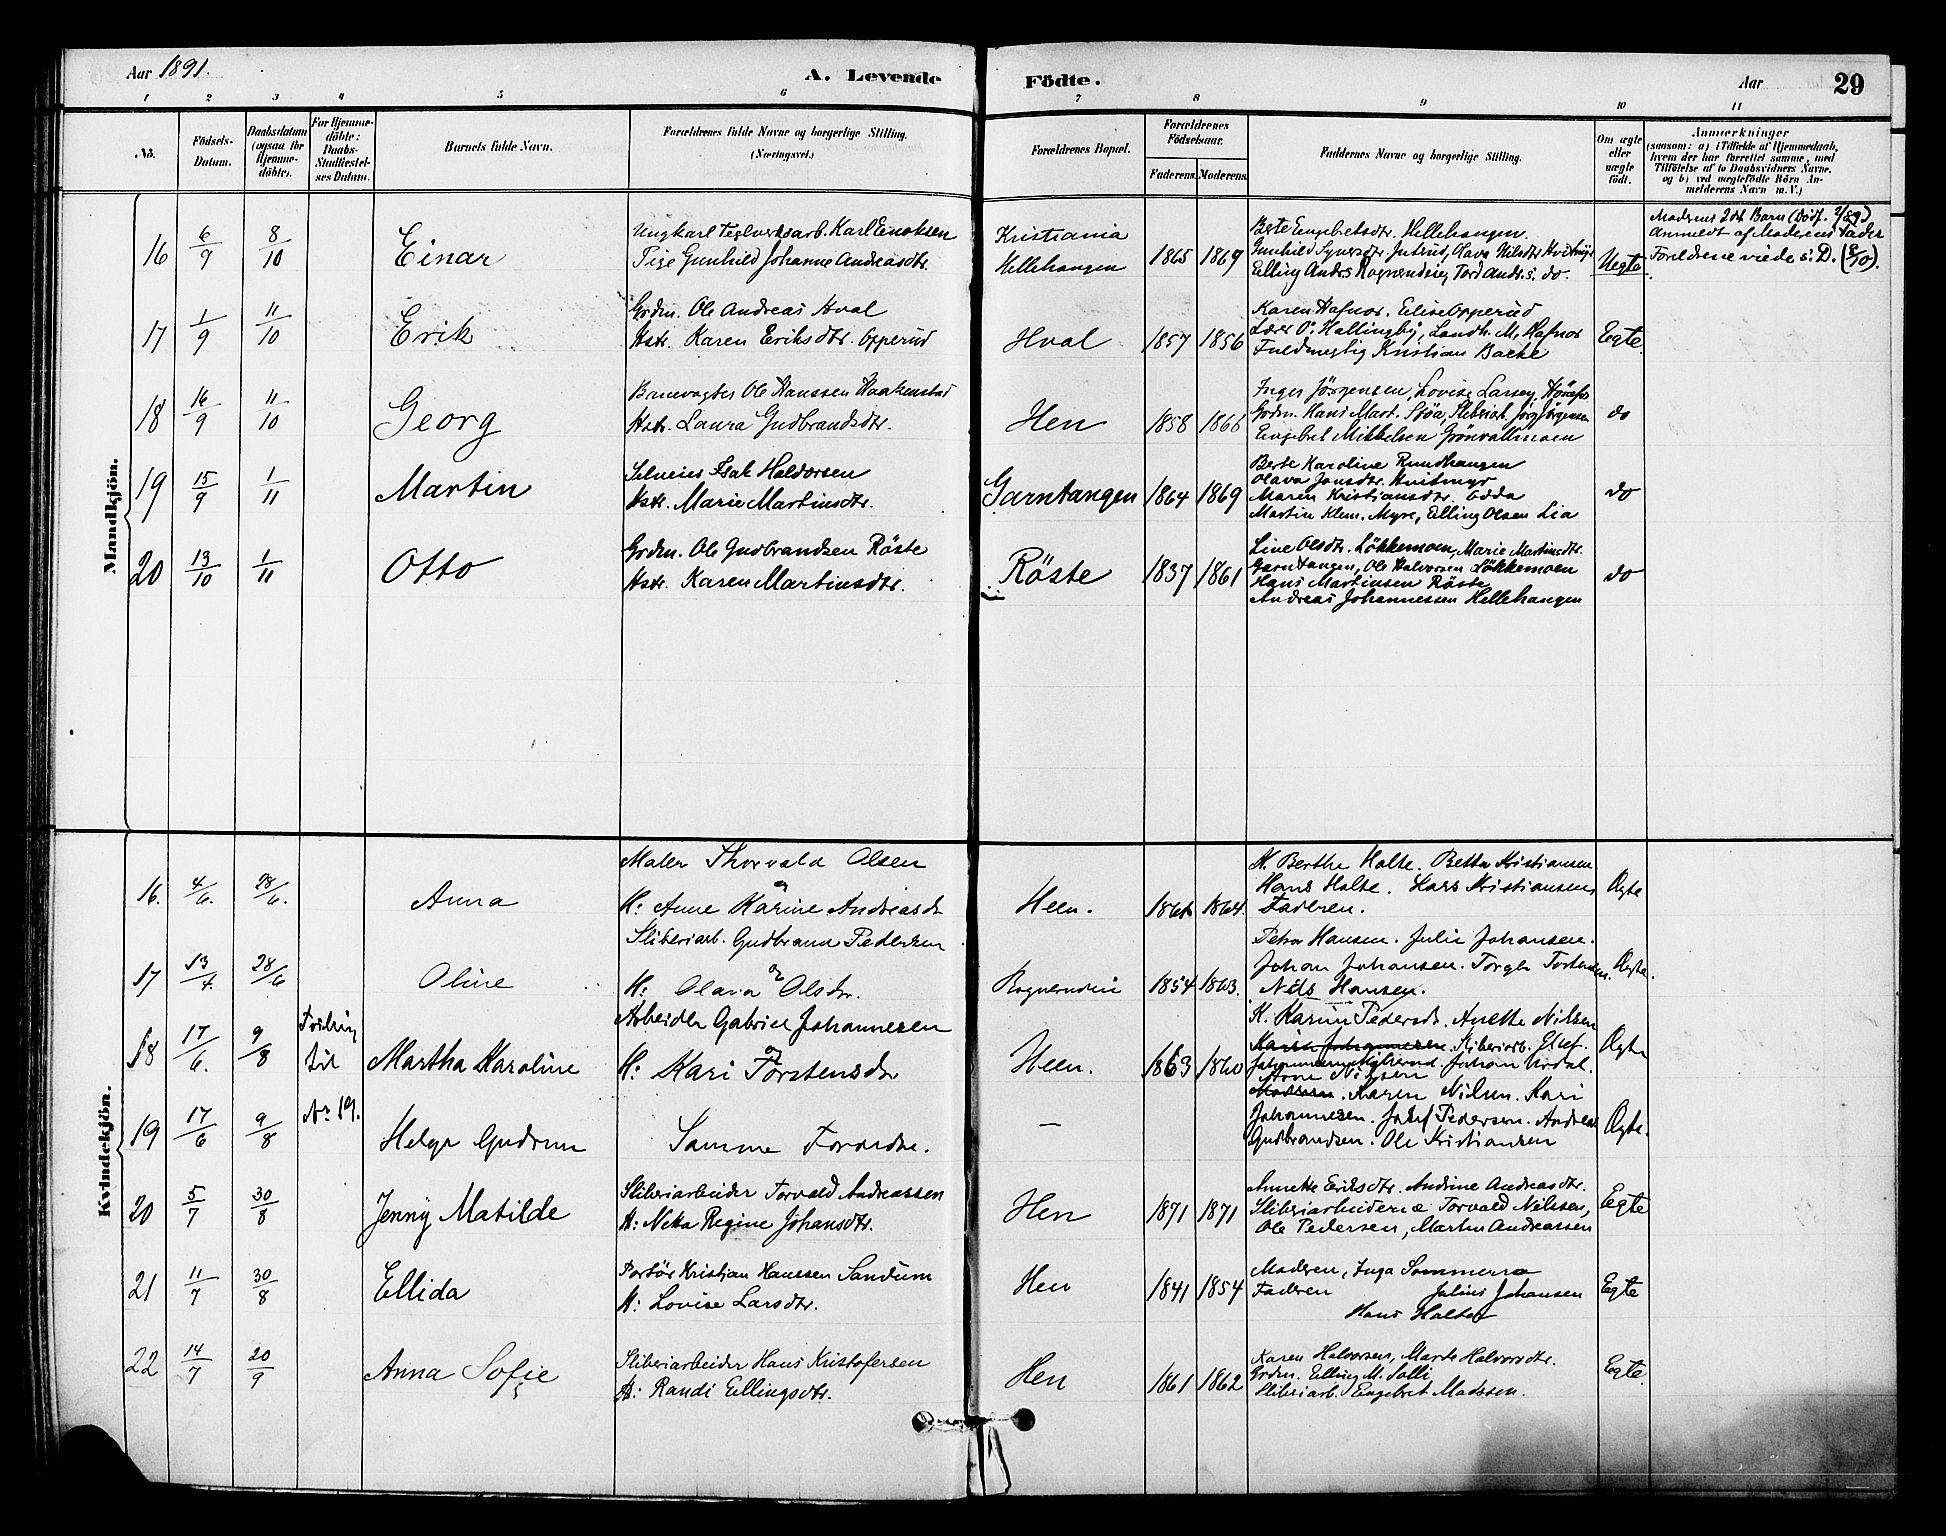 Aar 1891. A. Levende Födte. Aar 29
1 2 3 4 5 6 7 8 9 10 11
No. Födsels-Datum. Daabsdatum (ogsaa for Hjemme-döbte). For Hjemme-döbte: Daabs-Stadfæstel-ses Datum. Barnets fulde Navn. Forældrenes fulde Navne og borgerlige Stilling. (Næringsvei.) Forældrenes Bopæl. Forældrenes Födselsaar. Faderens. Moderens. Faddernes Navne og borgerlige Stilling. Om ægte eller uægte födt. Anmærkninger (saasom: a) i Tilfælde af Hjemmedaab, hvem der har forrettet samme, med Tilföielse af to Daabsvidners Navne. og b) ved uægtefödte Börn Anmelderens Navn m. V.)
Mandkjön.
16 6/9 8/10 Einar
Ungkarl Teglverksarb. Karl Enoksen
Pige Gunhild Johanne Andreasdtr.
Kristiania
Hellehaugen
1865 1869
Berte Engebretsdtr. Hellehaugen
Elling Andrs Rognerudeie, Tord Andr.s. do.
Uegte
Moderens 2det Barn (Dödf. 2/89)
Anmeldt af Moderens Fader
Foreldrene viede s. D. (8/10).
17 1/9 11/10 Erik
Grdm. Ole Andreas Hval
Hstr. Karen Eriksdtr. Opperud
Hval 1857 1856
Karen Hafnor. Elise Opperud
Lærer O. Hallingby, Landh. M. Hafnor
Fuldmegtig Kristian Bache
Egte.
18 16/9 11/10 Georg
Banevogter Ole Hanssen Haakenstad
Hstr. Laura Gudbrandsdtr.
Hen 1858 1866
Inger Jörgensen, Lovise Larsen, Hönefos
Grdm. Hans Mart. Stöa, Sliberiarb. Jörg. Jörgensen
Engebret Mikkelsen Grönvollmoen
do
19 15/9 1/11 Martin
Selveier Isak Haldorsen
Hstr. Marie Martinsdtr.
Garntangen 1864 1869
Berte Karoline Rundhaugen
Olava Jonsdtr. Hvitmyr
Maren Kristiansdtr. Odda
Martin Klem. Myre, Elling Olsen Lia
do
20 13/10 1/11 Otto
Grdm. Ole Gudbrandsen Röste
Hstr. Karen Martinsdtr.
Röste 1837 1861
Line Olsdtr. Lökkemoen, Marie Martinsdtr.
Garntangen, Ole Halvorsen Lökkemoen
Hans Martinsen Röste
Andreas Johannessen Hellehaugen
do
Kvindekjön.
16. 4/6. 28/6. Anna
Maler Thorvald Olsen
og
H: Anne Karine Andreasdr
Heen. 1864.
K. Berthe Holte. Betta Kristiansen
Hans Holte. Lars Kristiansen,
Faderen.
Ægte
17 13/4 28/6 Oline
Sliberiarb. Gudbrand Pedersen
og
H: Olava Olsdr.
1854 1863.
Petra Hansen. Julie Johansen.
Johan Johansen.
Nils Hansen.
Ægte.
18 17/6. 9/8 Tvilling til No 19. Martha Karoline
Arbeider Gabriel Johannesen
og
H: Kari Torstensdr
Heen. 1863 1860
K. Karin Pedersdr. Anette Nilsen
Sliberiarb.
Ægte
19 17/6 9/8 Helga Gudrun
Samme Forældre. —
Karen Nilsen. Kari
Johannesen. Josef Pedersen. Andreas
Gudbrandsen. Ole Kristiansen
Ægte.
20 5/7 30/8 Jenny Matilde
Sliberiarbeider Torvald Andreassen
H: Neka Regine Johansdtr.
Hen 1871 1871
Annette Eriksdtr. Andrine Andreasdtr.
Sliberiarbeiderne Torvald Nilssen,
Ole Pedersen, Martin Andreassen
Egte
21 11/7 30/8 Ellida
Portör Kristian Hanssen Sandum
H: Lovise Larsdtr.
Hen 1841 1854
Moderen, Inga Sommerro
Faderen Julius Johansen
Hans Holte
Egte
22 14/7 20/9 Anna Sofie
Sliberiarbeider Hans Kristofersen
H: Randi Ellingsdtr.
Hen 1861 1862
Karen Halvorsen, Marte Halvorsdtr.
Grdm. Elling M. Solli
Sliberiarb. Engebret Madssen.
Egte.